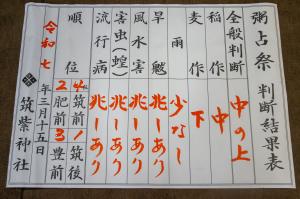 粥占祭 判断結果表
全般判断 中の上
稲作 中
麦作 下
雨 少なし
旱魃 兆しあり
風水害 兆しあり
害虫(蝗) 兆しあり
流行病 兆しあり
順位 4 筑前 1 筑後
2 肥前 3 豊前
令和七年三月十五日
筑紫神社